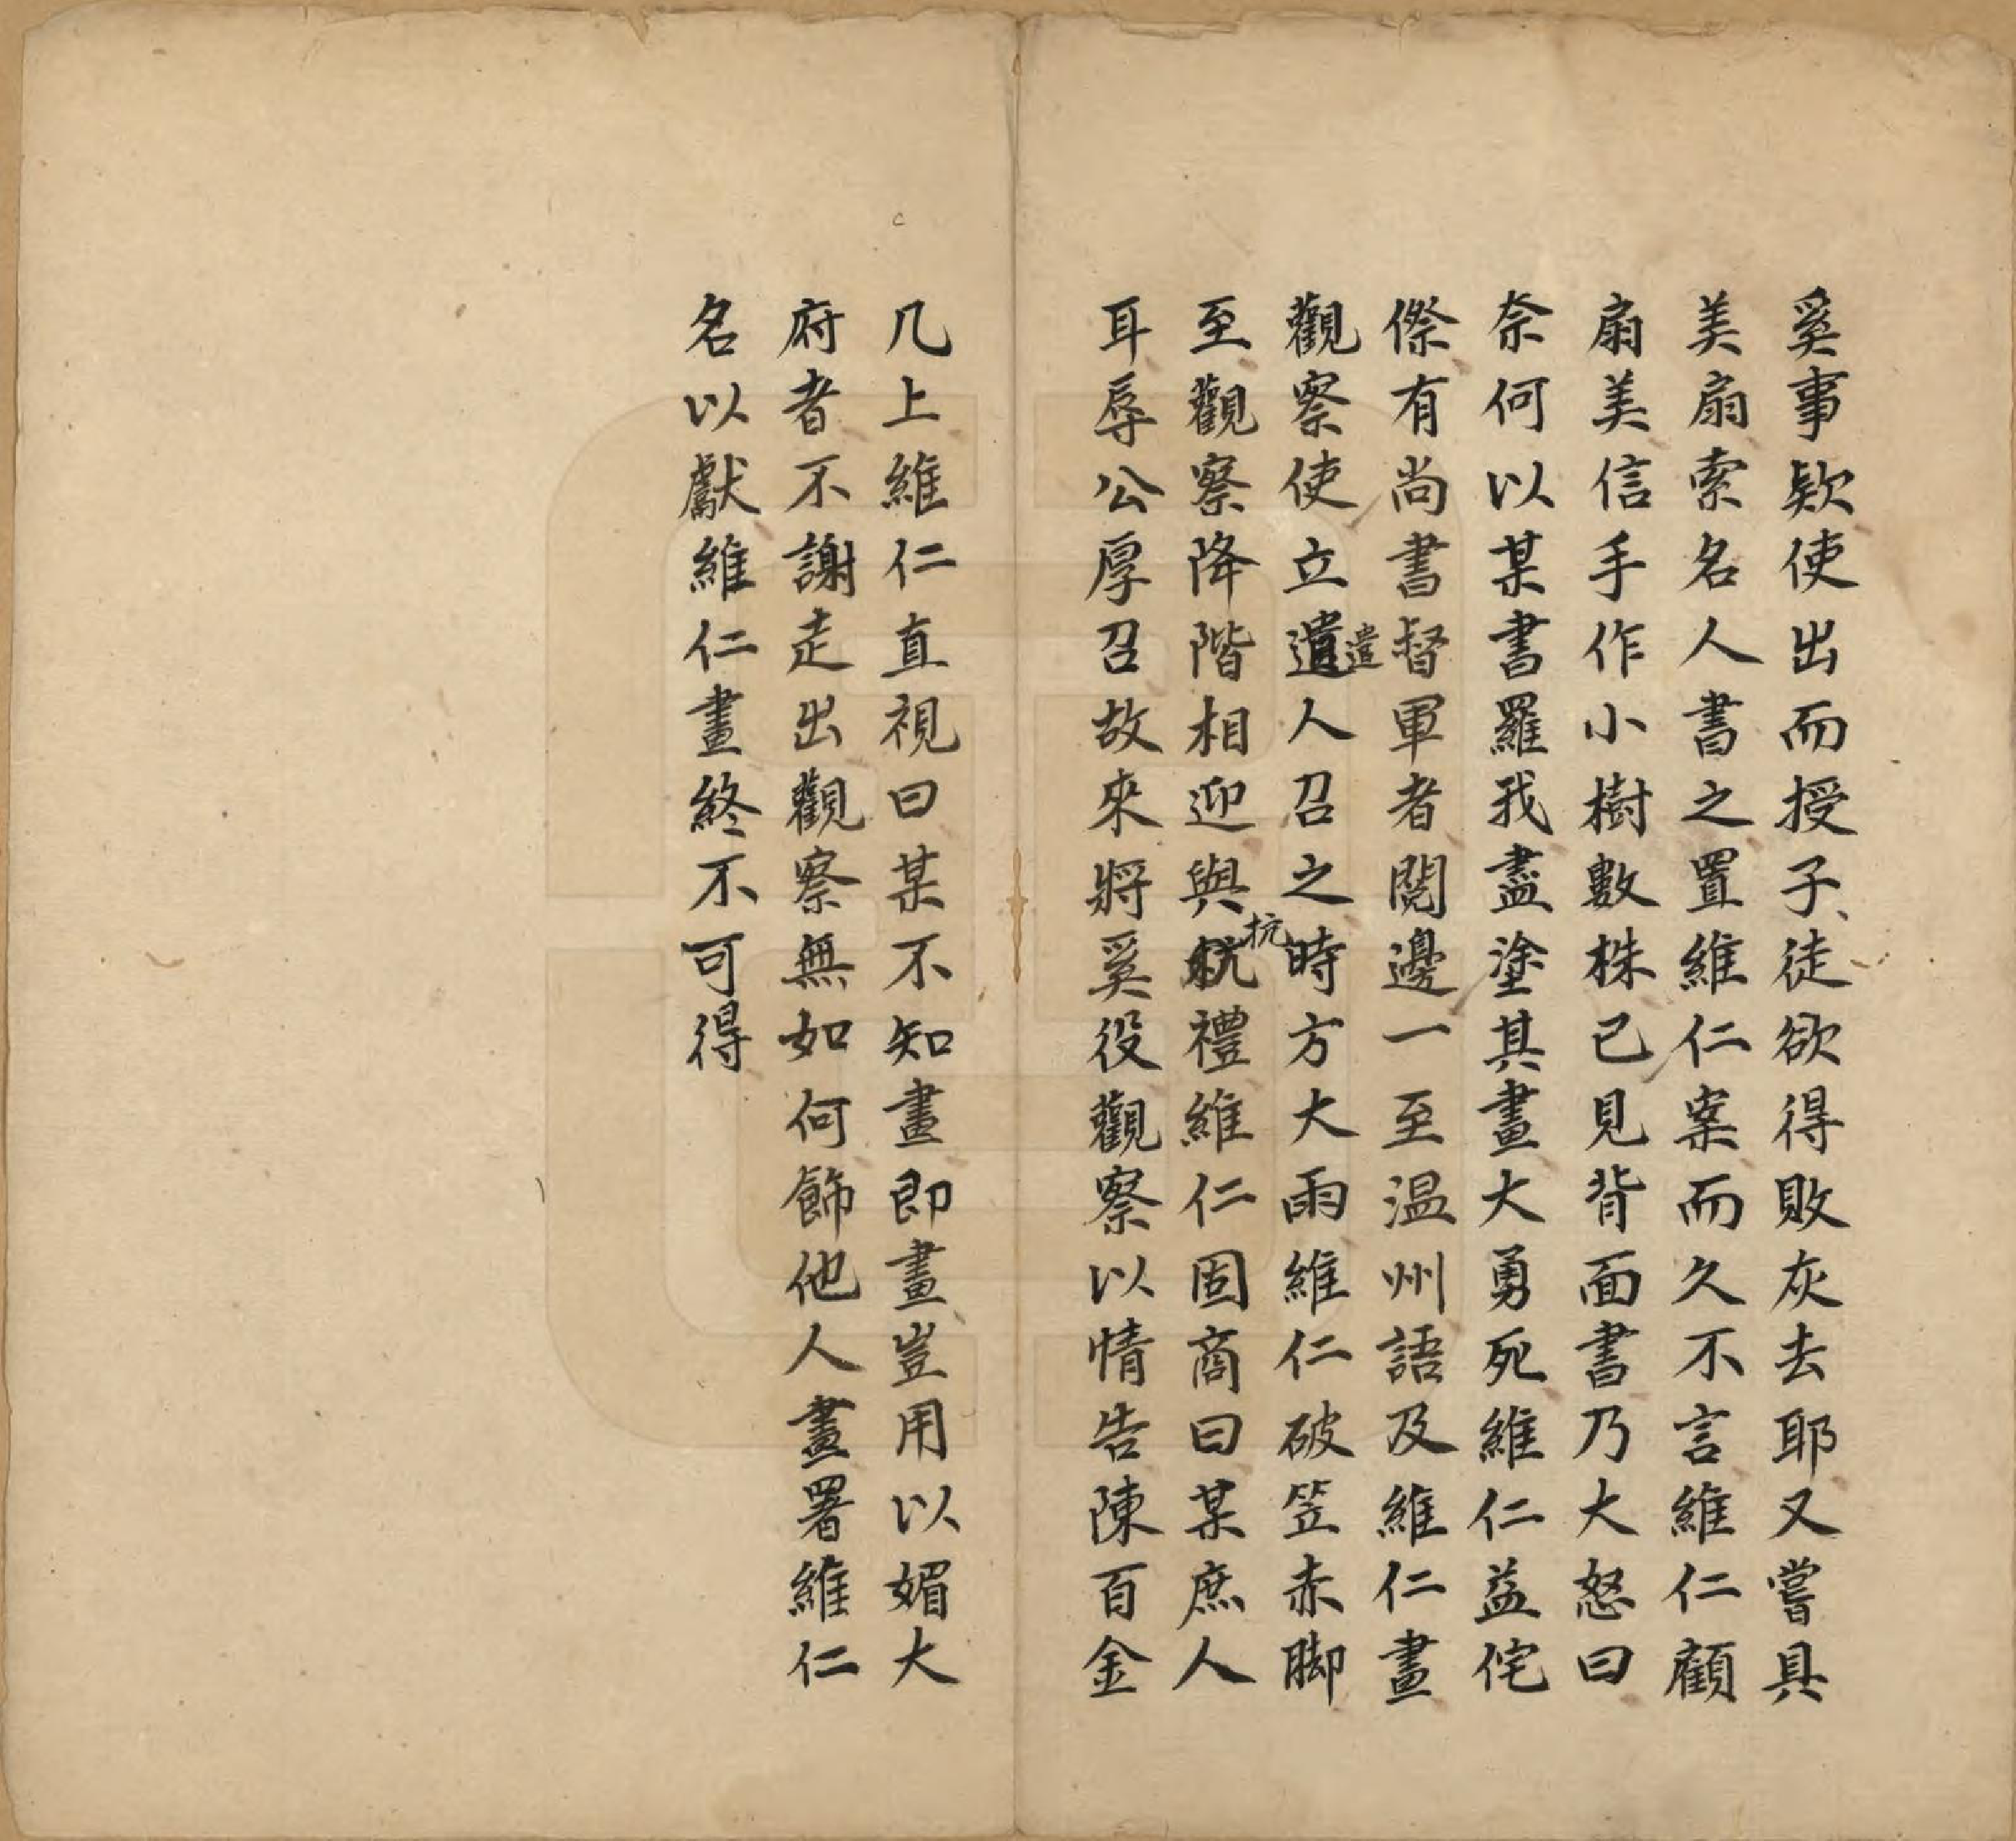 奚事欵使出而授子徒欲得敗灰去耶又嘗具
美扇索名人書之置維仁案而久不言維仁顧
扇美信手作小樹數株已見背面書乃大怒曰
奈何以某書羅我盡塗其畫大勇死維仁益侘
傺有尚書督軍者閱邊一至温州語及維仁畫
觀察使立遣人召之時方大雨維仁破笠赤脚
遣
至觀察降階相迎與抗禮維仁固商曰某庶人
抗
耳辱公厚召故來將奚役觀察以情告陳百金
几上維仁直視曰某不知畫即畫豈用以媚大
府者不謝走出觀察無如何飾他人畫署維仁
名以獻維仁畫終不可得